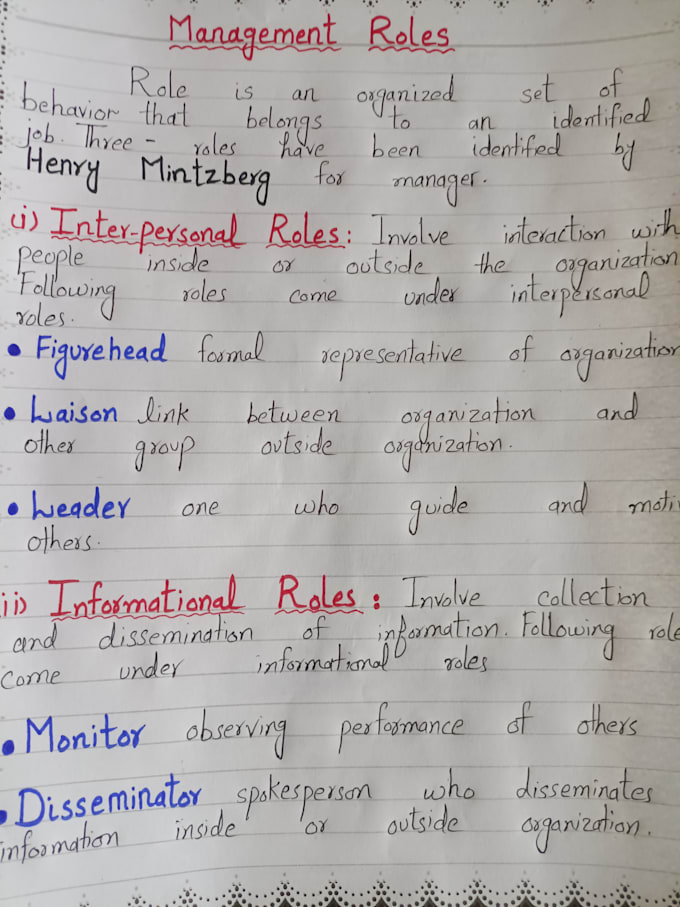 Management Roles
Role is an organized set of
behavior that belongs to an identified
job. Three - roles have been identified by
Henry Mintzberg for manager.
(i) Inter-personal Roles: Involve interaction with
people inside or outside the organization
Following roles come under interpersonal
roles.
• Figurehead formal representative of organization
• Liaison link between organization and
other group outside organization.
• Leader one who guide and moti
others.
ii) Informational Roles: Involve collection
and dissemination of information. Following role
come under informational roles
• Monitor observing performance of others
• Disseminator spokesperson who disseminates
information inside or outside organization.